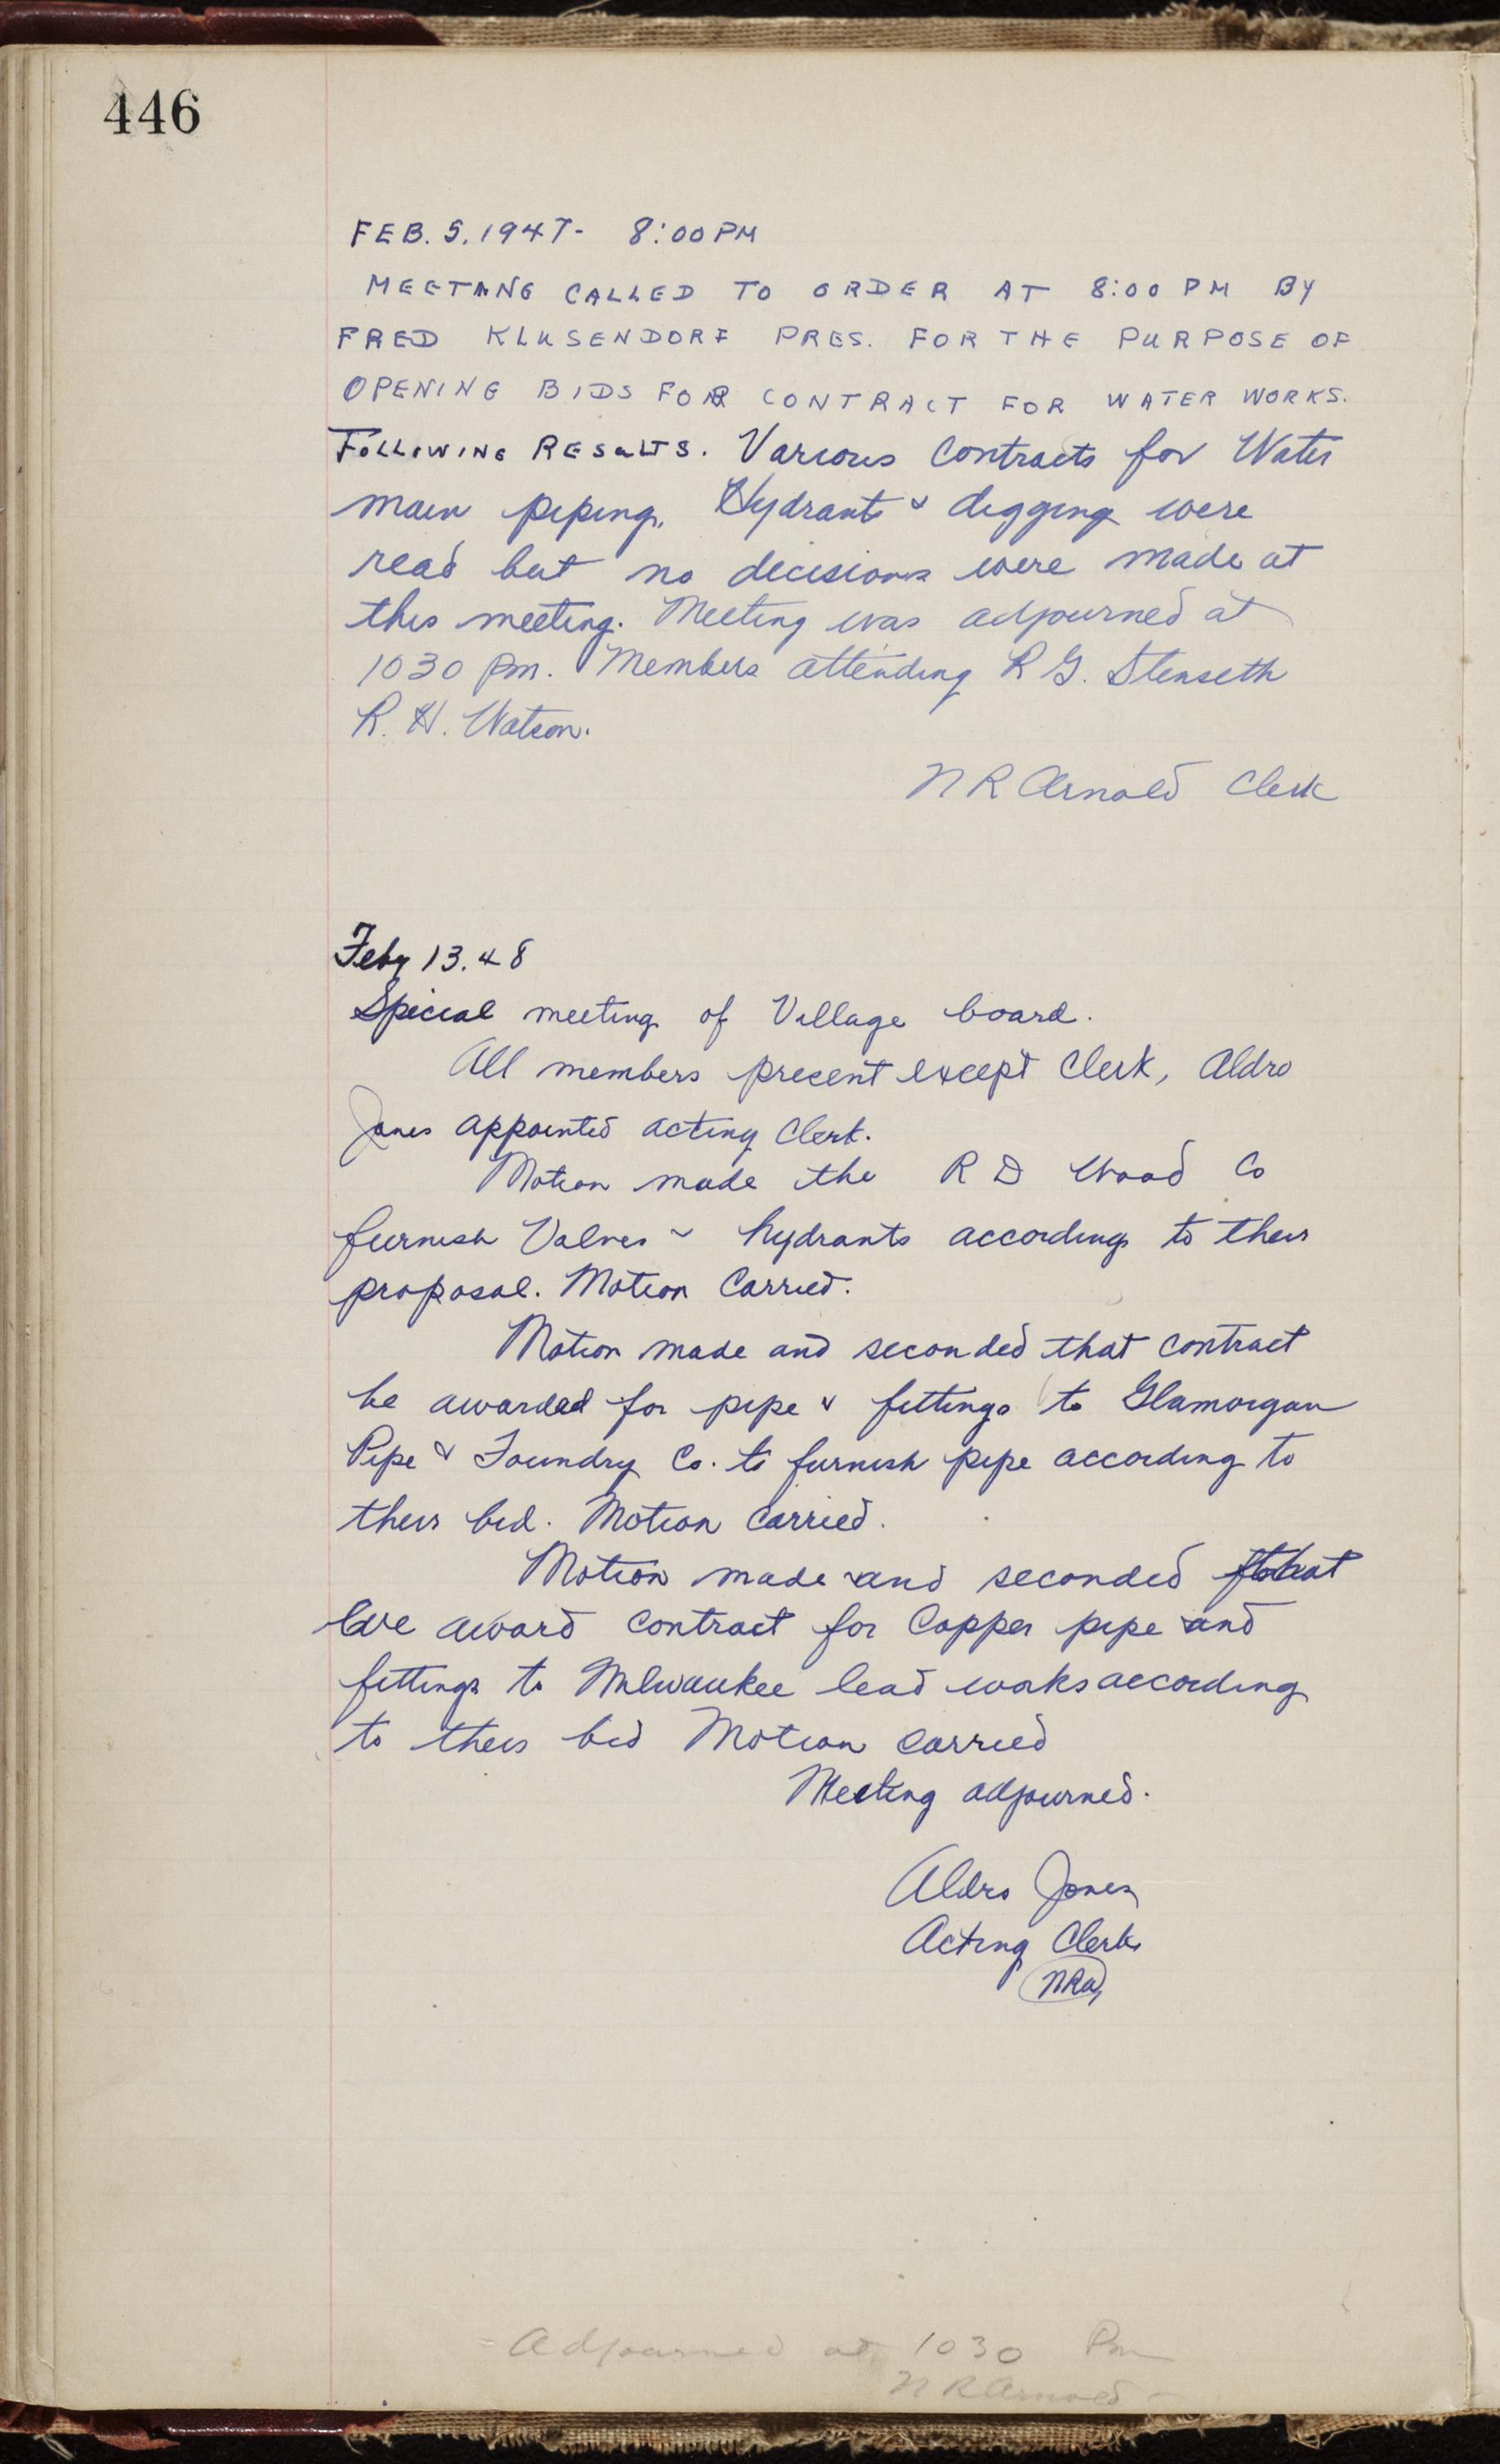 446
FEB. 5. 1947- 8:00 PM
MEETING CALLED TO ORDER AT 8:00 PM BY
FRED KLUSENDORF PRES. FOR THE PURPOSE OF
OPENING BIDS FOR CONTRACT FOR WATER WORKS.
FOLLOWING RESULTS. Various Contracts for Water
main piping, Hydrants & digging were
read but no decisions were made at
this meeting. Meeting was adjourned at
1030 Pm. Members attending R G. Stenseth
R. H. Watson.
N R Arnold Clerk
Feby 13. 48
Special meeting of Village board.
All members present except Clerk, Aldro
Jones appointed acting Clerk.
Motion made the R D Wood Co
furnish Valves & hydrants according to their
proposal. Motion Carried.
Motion made and seconded that contract
be awarded for pipe & fittings to Glamorgan
Pipe & Foundry Co. to furnish pipe according to
their bid. Motion Carried.
Motion made and seconded that
We award contract for Copper pipe and
fittings to Milwaukee lead works according
to their bid Motion carried
Meeting adjourned.
Aldro Jones
Acting Clerk
NRA
Adjourned at 1030 Pm
N R Arnold